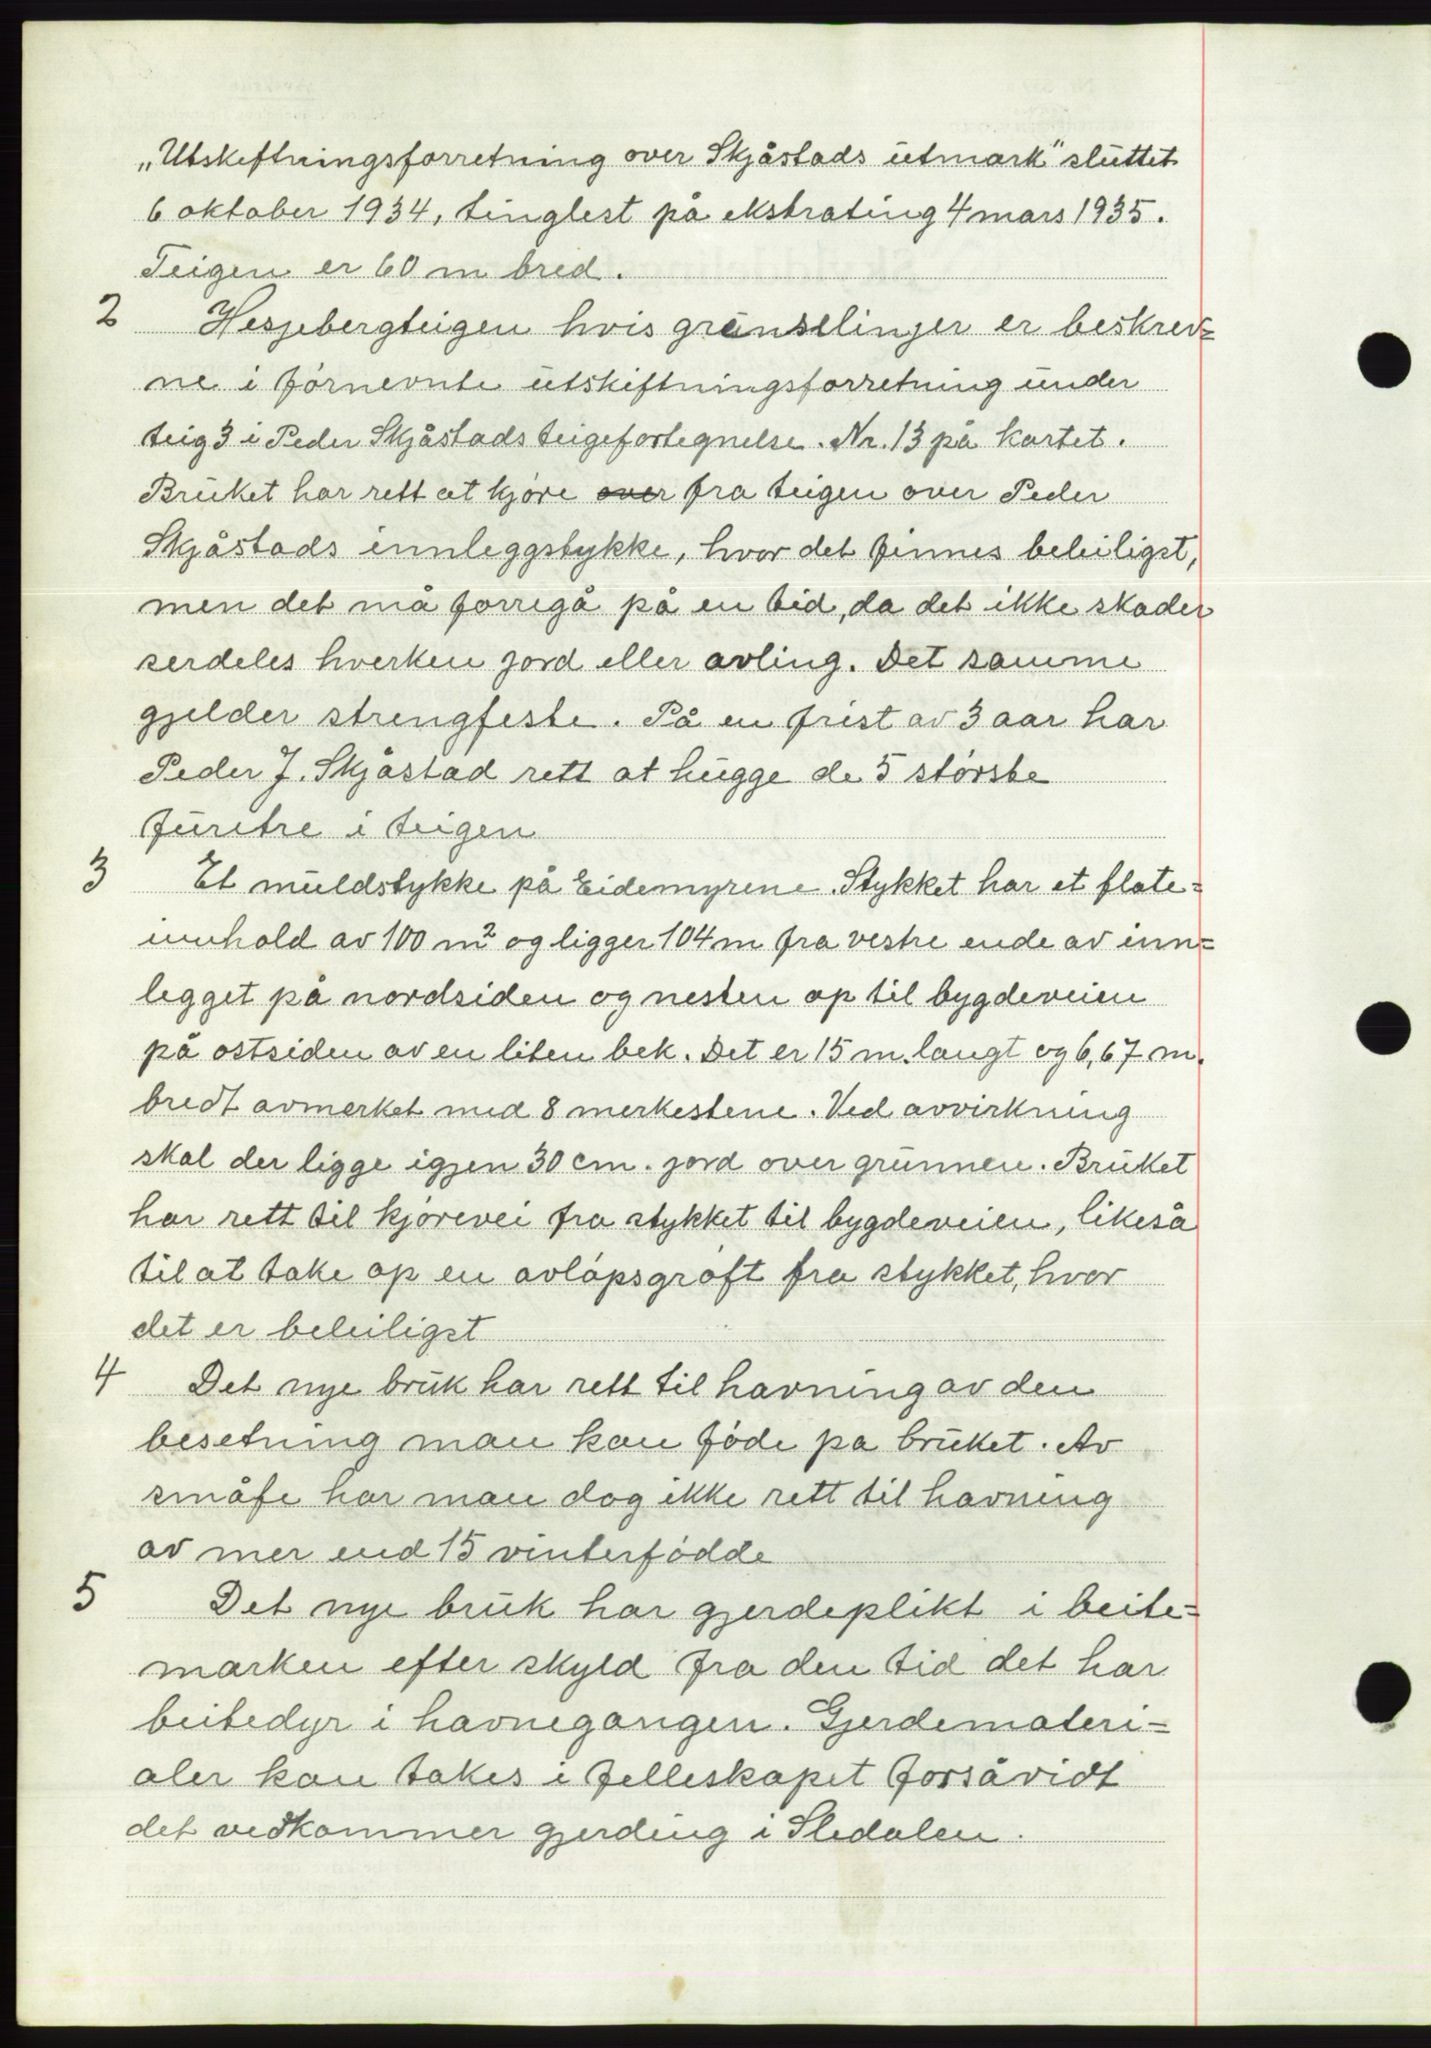 „Utskeftningsforretning over Skjåstads utmark" sluttet
6 oktober 1934, tinglest på ekstrating 4 mars 1935.
Teigen er 60 m bred.
2 Hesjebergteigen hvis grenselinjer er beskrev=
ne i førnevnte utskiftningsforretning under
teig 3 i Peder Skjåstads teigefortegnelse. Nr. 13 på kartet.
Bruket har rett at kjøre ~~over~~ fra teigen over Peder
Skjåstads innleggstykke, hvor det finnes beleiligst,
men det må forregå på en tid, da det ikke skader
serdeles hverken jord eller avling. Det samme
gjelder strengfeste. På en frist av 3 aar har
Peder J. Skjåstad rett at hugge de 5 største
furetre i teigen
3 Et muldstykke på Eidemyrene. Stykket har et flate=
innhold av 100 m² og ligger 104 m fra vestre ende av inn=
legget på nordsiden og nesten op til bygdeveien
på ostsiden av en liten bek. Det er 15 m. langt og 6,67 m.
bredt avmerket med 8 merkestene. Ved avvirkning
skal der ligge igjen 30 cm. jord over grunnen. Bruket
har rett til kjørevei fra stykket til bygdeveien, likeså
til at take op en avløpsgrøft fra stykket, hvor
det er beleiligst
4 Det nye bruk har rett til havning av den
besetning man kan føde pa bruket. Av
småfe har man dog ikke rett til havning
av mer end 15 vinterfødde
5 Det nye bruk har gjerdeplikt i beite=
marken efter skyld fra den tid det har
beitedyr i havnegangen. Gjerdemateri=
aler kan takes i felleskapet forsåvidt
det vedkommer gjerding i Sledalen.